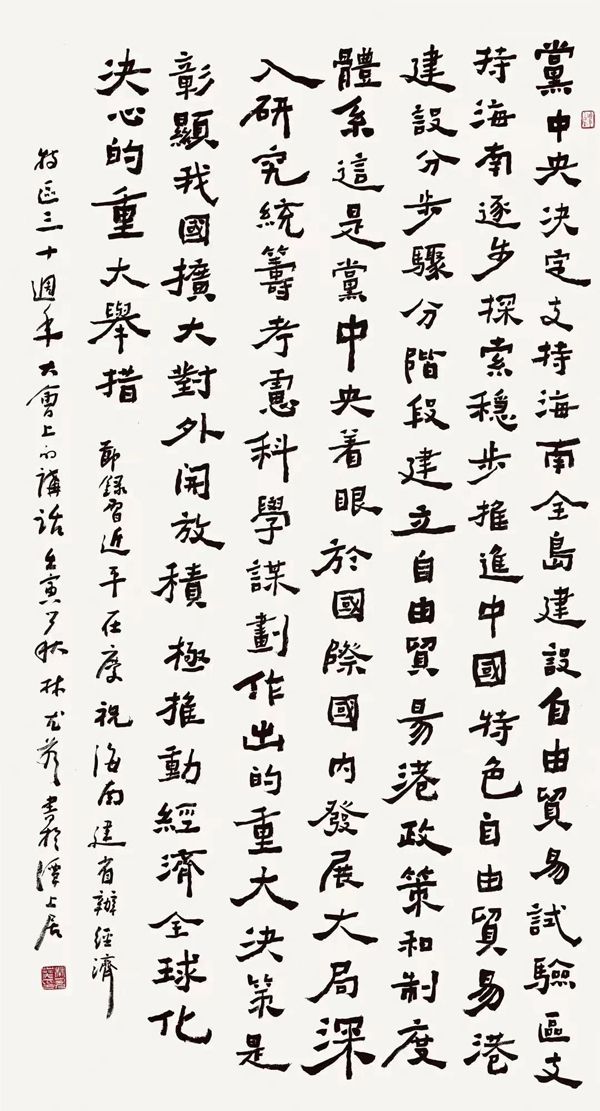 黨中央決定支持海南全島建設自由貿易試驗區支
持海南逐步探索穩步推進中國特色自由貿易港
建設分步驟分階段建立自由貿易港政策和制度
體系這是黨中央着眼於國際國内發展大局深
入研究統籌考慮科學謀劃作出的重大決策是
彰顯我國擴大對外開放積極推動經濟全球化
決心的重大舉措
節録習近平在慶祝海南建省辦經濟
特區三十週年大會上的講話壬寅之秋林尤葵書於潭上居